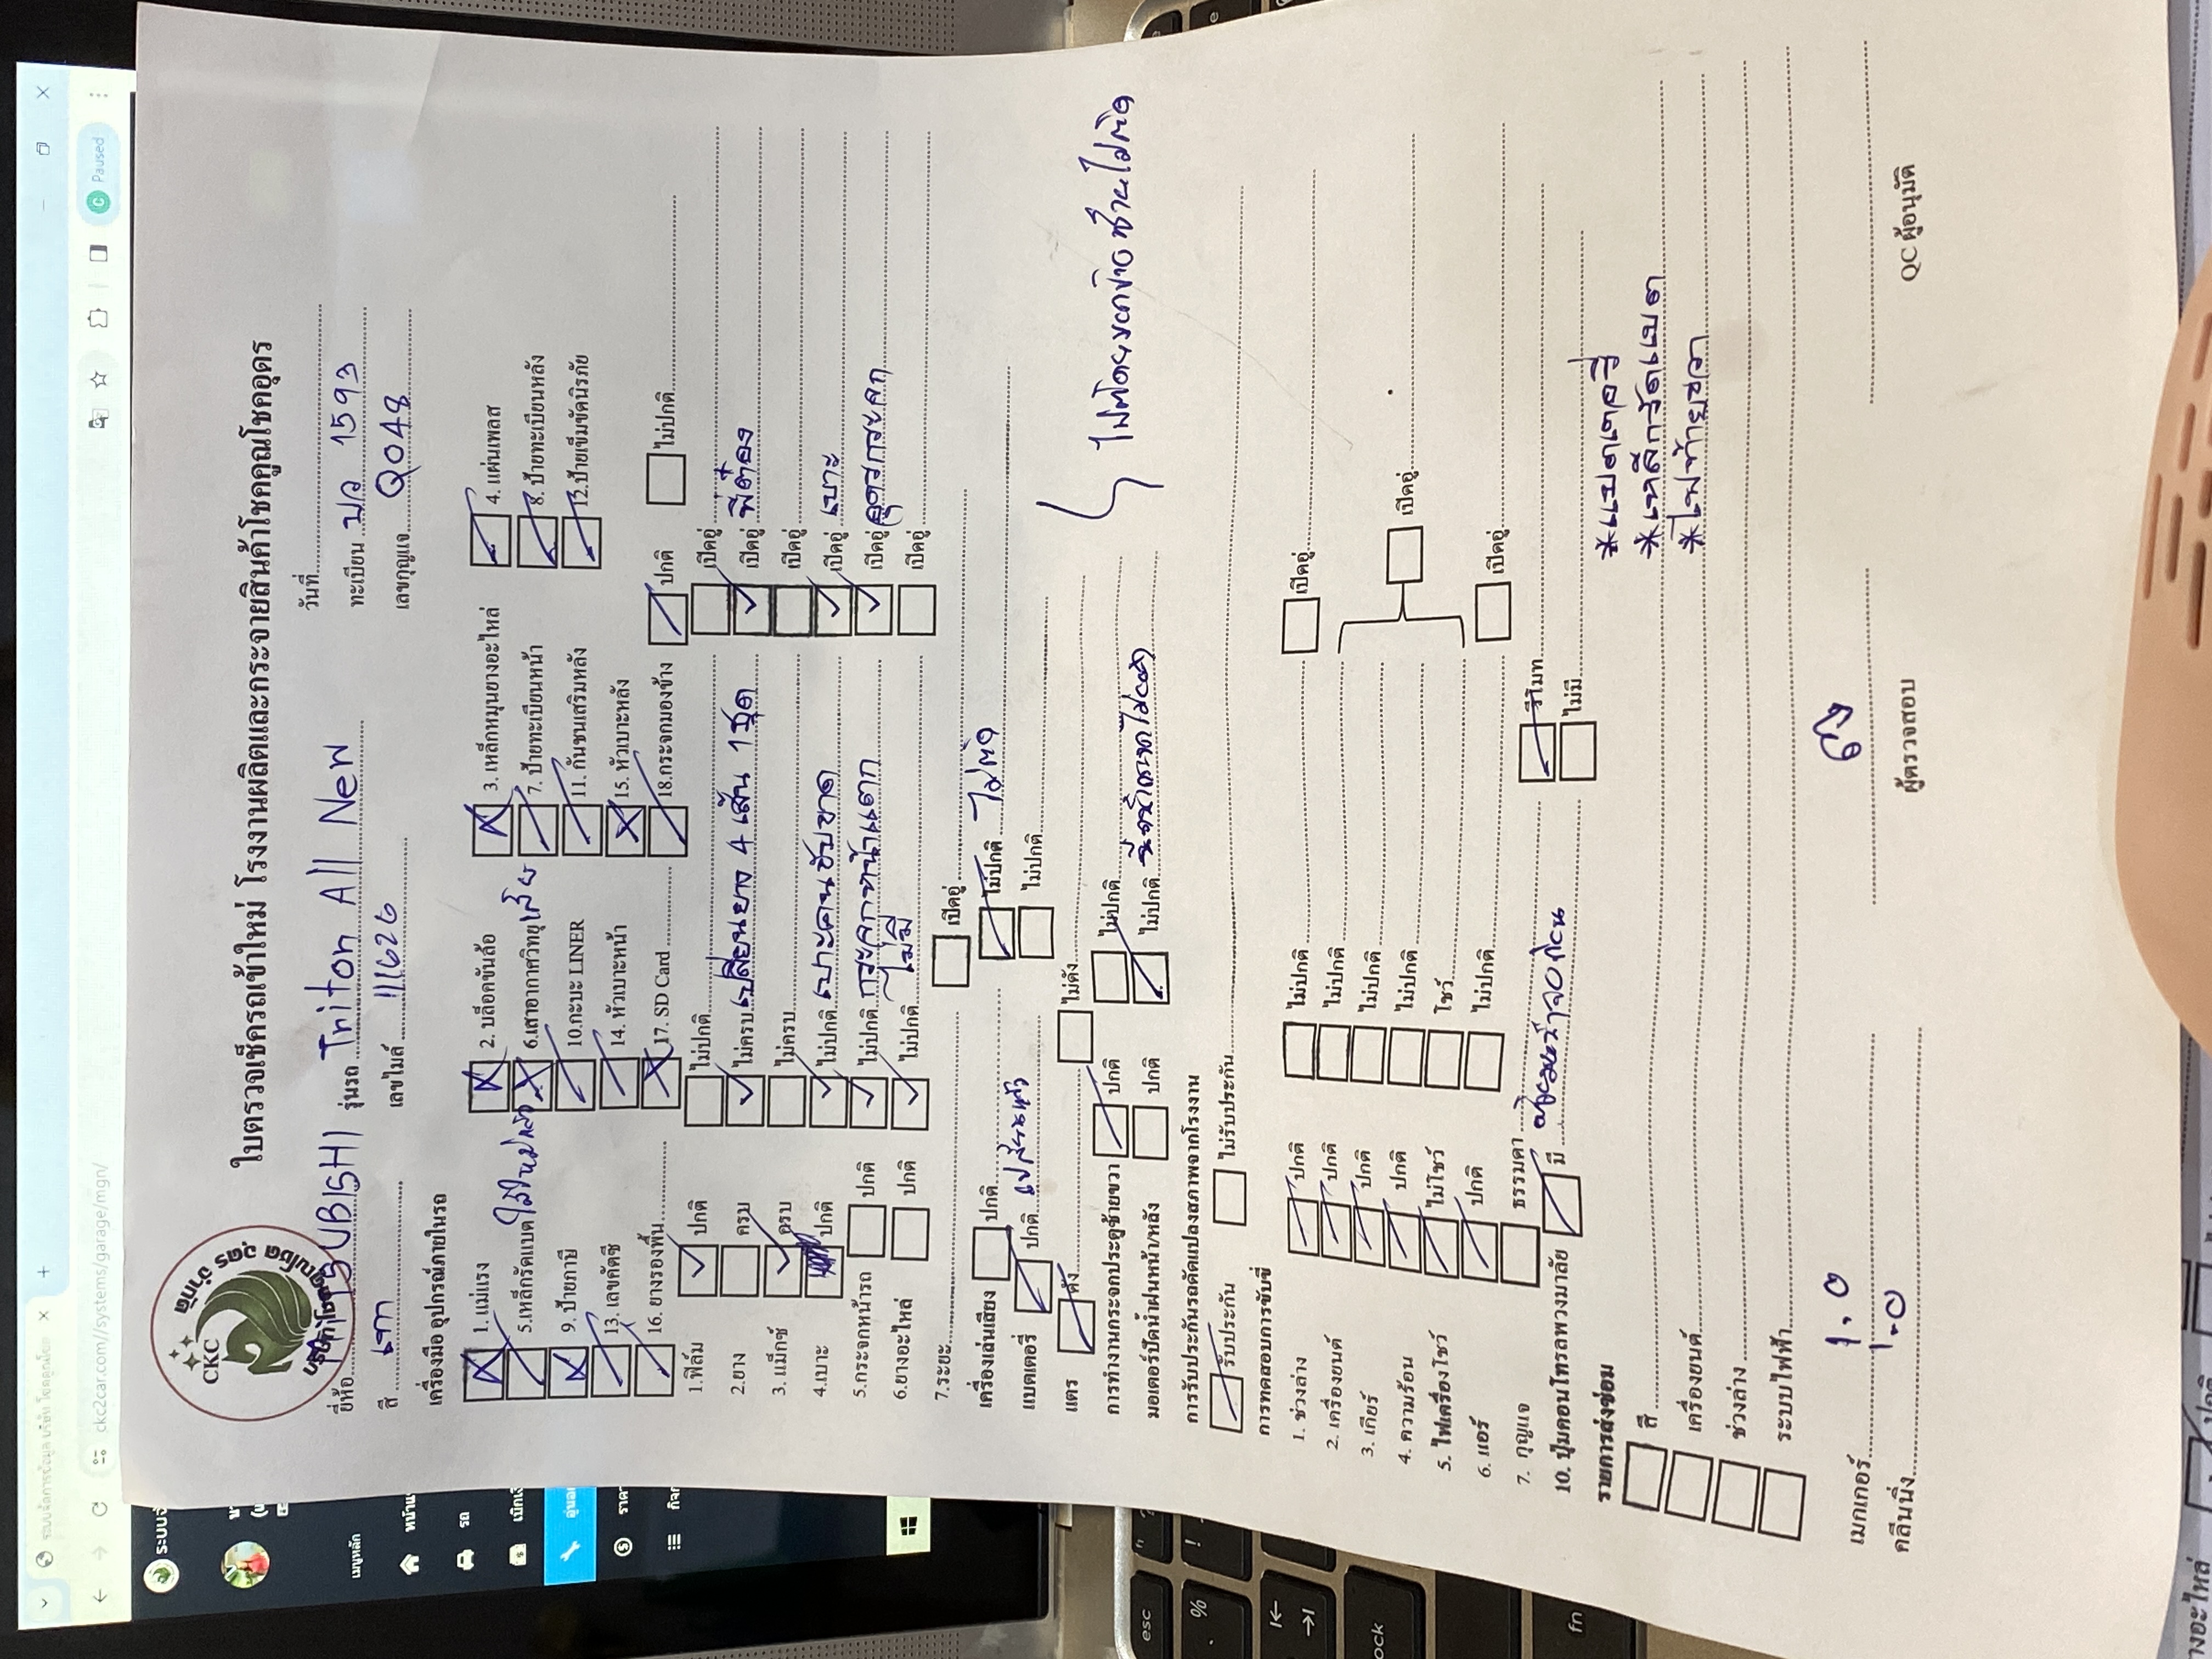 ใบตรวจเช็ครถเข้าใหม่ โรงงานผลิตและกระจายสินค้าโชคคูณโชคอุดร
CKC
วันที่
ยี่ห้อ MITSUBISHI รุ่นรถ Triton All New ทะเบียน บล 1593
สี เทา เลขไมล์ 111626 เลขกุญแจ Q048
เครื่องมือ อุปกรณ์ภายในรถ
1. แม่แรง 2. บล็อคขันล้อ 3. เหล็กหมุนยางอะไหล่ 4. แผ่นเพลส
5.เหล็กรัดแบต 6.เสาอากาศวิทยุ 7. ป้ายทะเบียนหน้า 8. ป้ายทะเบียนหลัง
9. ป้ายภาษี 10.กะบะ LINER 11. กันชนเสริมหลัง 12.ป้ายเข็มขัดนิรภัย
13. เลขคัตซี 14. หัวเบาะหน้า 15. หัวเบาะหลัง
16. ยางรองพื้น 17. SD Card 18.กระจกมองข้าง ปกติ ไม่ปกติ
1.ฟิล์ม ปกติ ไม่ปกติ เปิดอู่
2.ยาง ครบ ไม่ครบ เปลี่ยนยาง 4 เส้น 1 ชุด เปิดอู่ พี่ต๋อง
3. แม็กซ์ ครบ ไม่ครบ เปิดอู่
4.เบาะ ปกติ ไม่ปกติ เบาะคนขับขาด เปิดอู่ เบาะ
5.กระจกหน้ารถ ปกติ ไม่ปกติ กระจกหน้าแตก เปิดอู่ อุดรกระจก
6.ยางอะไหล่ ปกติ ไม่ปกติ ไม่มี เปิดอู่
7.ระยะ เปิดอู่
เครื่องเล่นเสียง ปกติ ไม่ปกติ ไม่ติด
แบตเตอรี่ ปกติ ไม่ปกติ
แตร ดัง ไม่ดัง
การทำงานกระจกประตูซ้ายขวา ปกติ ไม่ปกติ
มอเตอร์ปัดน้ำฝนหน้า/หลัง ปกติ ไม่ปกติ
การรับประกันรถดัดแปลงสภาพจากโรงงาน
รับประกัน ไม่รับประกัน
การทดสอบการขับขี่
1. ช่วงล่าง ปกติ ไม่ปกติ เปิดอู่
2. เครื่องยนต์ ปกติ ไม่ปกติ
3. เกียร์ ปกติ ไม่ปกติ
4. ความร้อน ปกติ ไม่ปกติ เปิดอู่
5. ไฟเครื่องโชว์ ไม่โชว์ โชว์
6. แอร์ ปกติ ไม่ปกติ เปิดอู่
7. กุญแจ ธรรมดา รีโมท
10. ปุ่มคอนโทรลพวงมาลัย มี ไม่มี
รายการส่งซ่อม
สี
เครื่องยนต์
ช่วงล่าง
ระบบไฟฟ้า
*แบตเตอรี่
*เหล็กรัดแบต
*ไฟท้ายขวา
เมกเกอร์ 1.0
คลีนนิ่ง 1.0
ผู้ตรวจสอบ
QC ผู้อนุมัติ
ckc2car.com//systems/garage/mgn/
Paused
เมนูหลัก
รถ
esc
fn